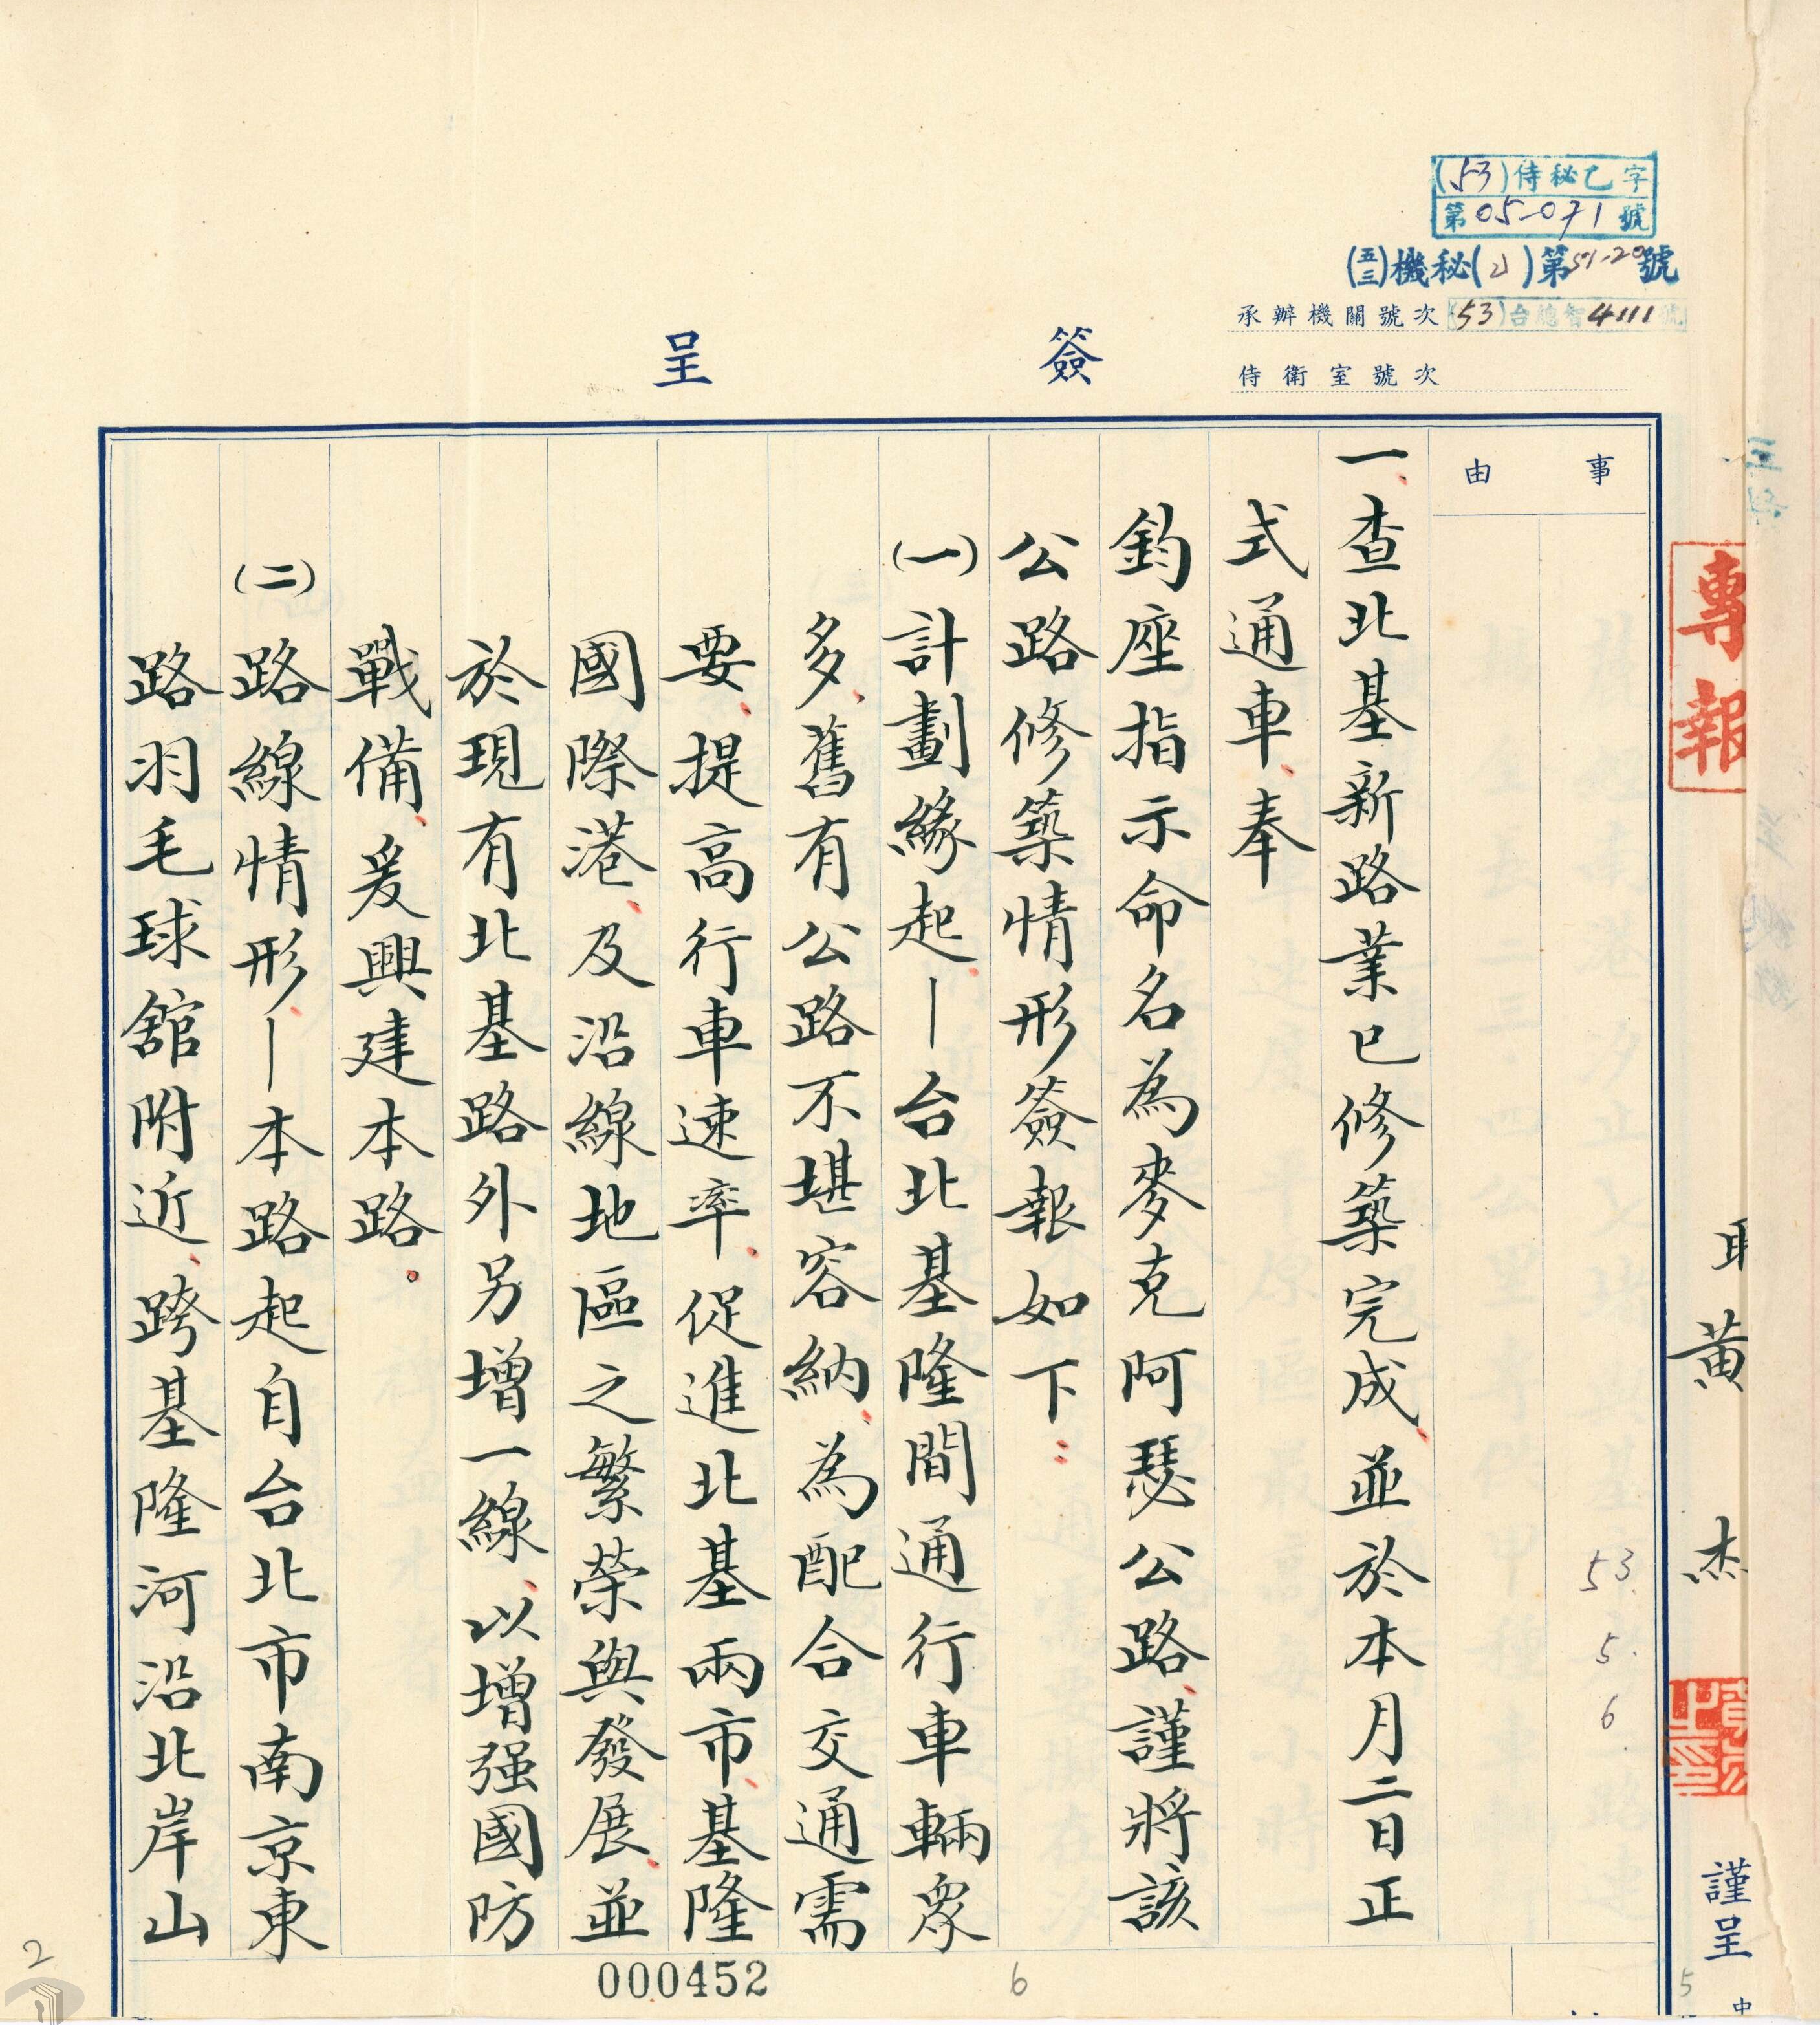 (53)侍秘乙字
第05-071號
(五三)機秘(乙)第51-20號
承辦機關號次 (53)台總智4111號
侍衛室號次
簽呈
專報
黃杰
謹呈
事由
53.5.6.
一、查北基新路業已修築完成、並於本月二日正
式通車、奉
鈞座指示命名為麥克阿瑟公路、謹將該
公路修築情形簽報如下：
(一)計劃緣起、—台北基隆間通行車輛眾
多、舊有公路不堪容納、為配合交通需
要、提高行車速率、促進北基兩市、基隆
國際港、及沿線地區之繁榮與發展、並
於現有北基路外另增一線、以增强國防
戰備、爰興建本路。
(二)路線情形、—本路起自台北市南京東
路羽毛球舘附近、跨基隆河沿北岸山
000452
6
2
5